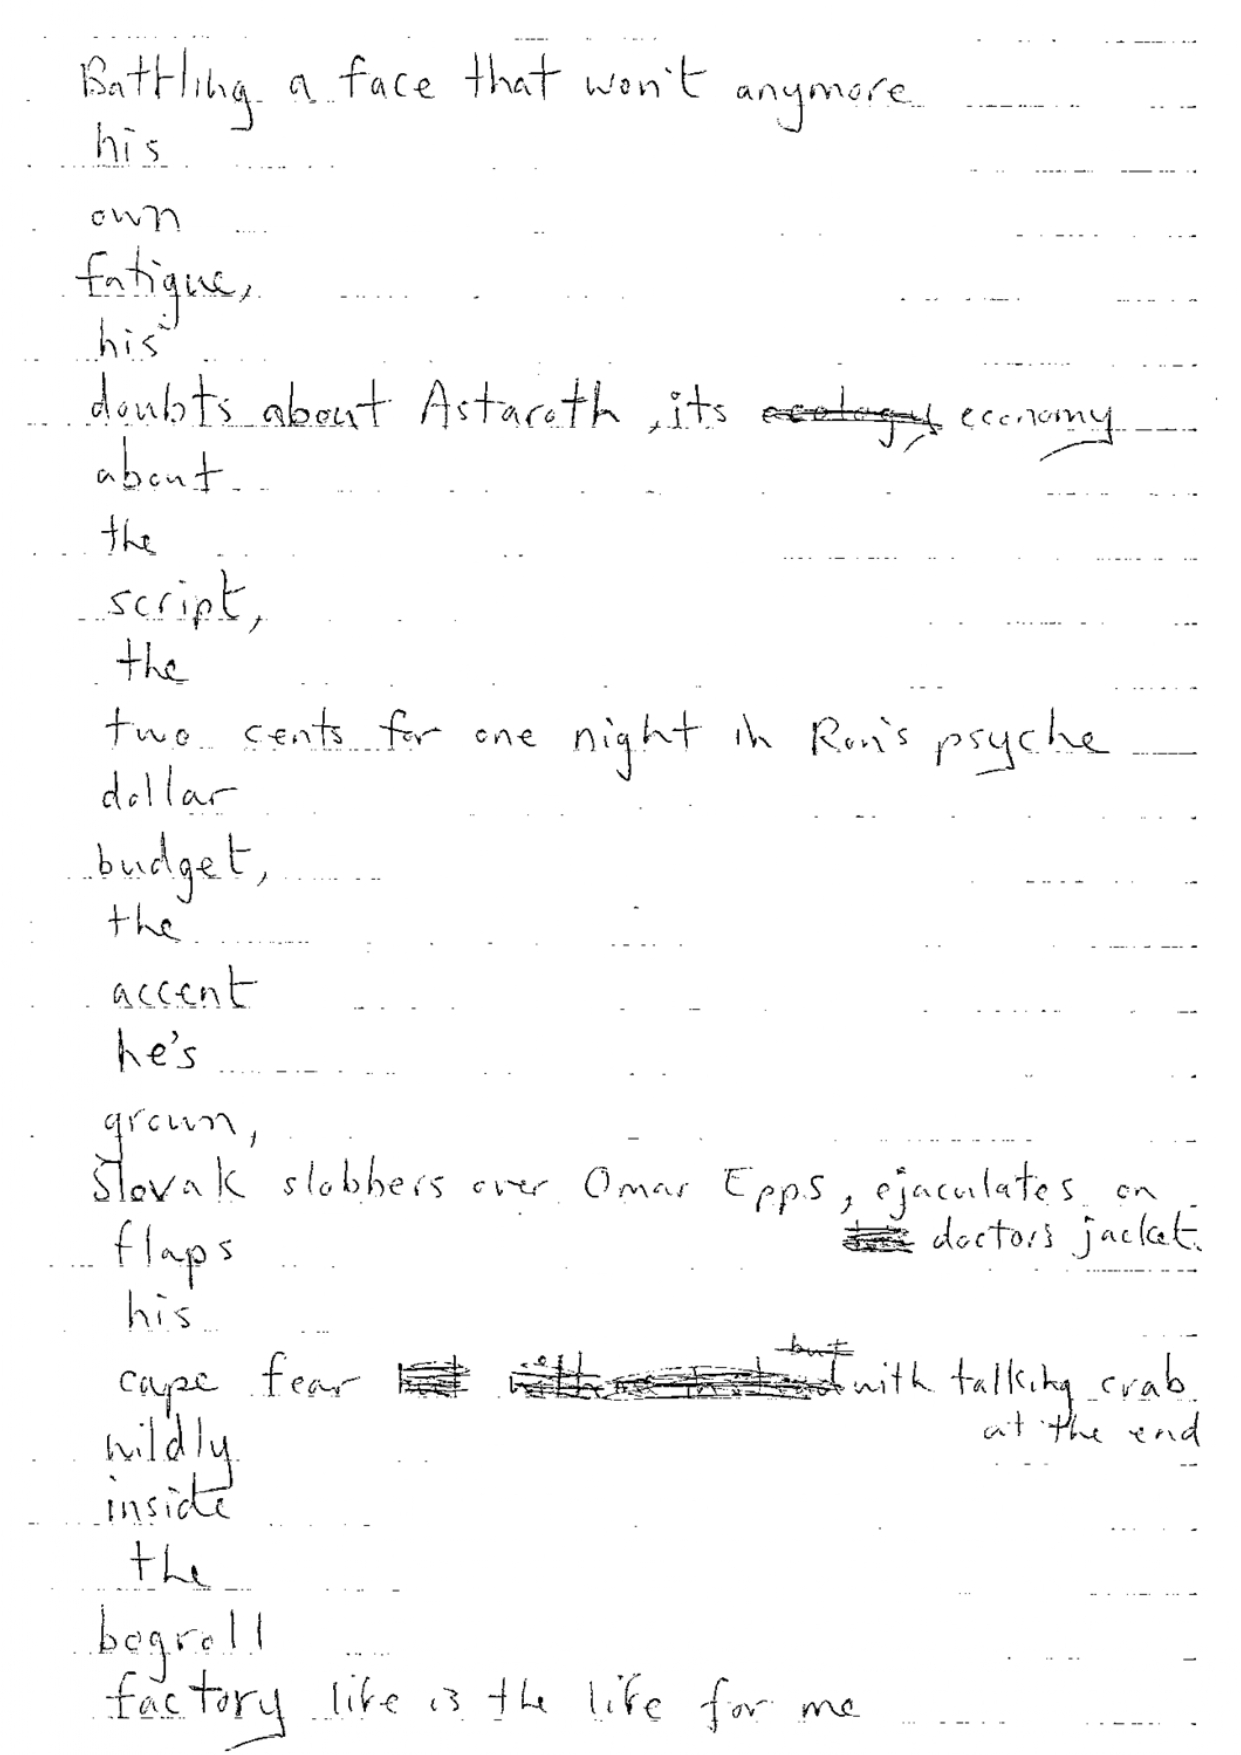 Battling a face that won't anymore
his
own
fatigue,
his
doubts about Astaroth, its ecology, economy
about
the
script,
the
two cents for one night in Ron's psyche
dollar
budget,
the
accent
he's
grown,
Slovak slobbers over Omar Epps, ejaculates on
doctors jacket.
flaps
his
but
cape fear with talking crab
at the end
wildly
inside
the
bogroll
factory life is the life for me